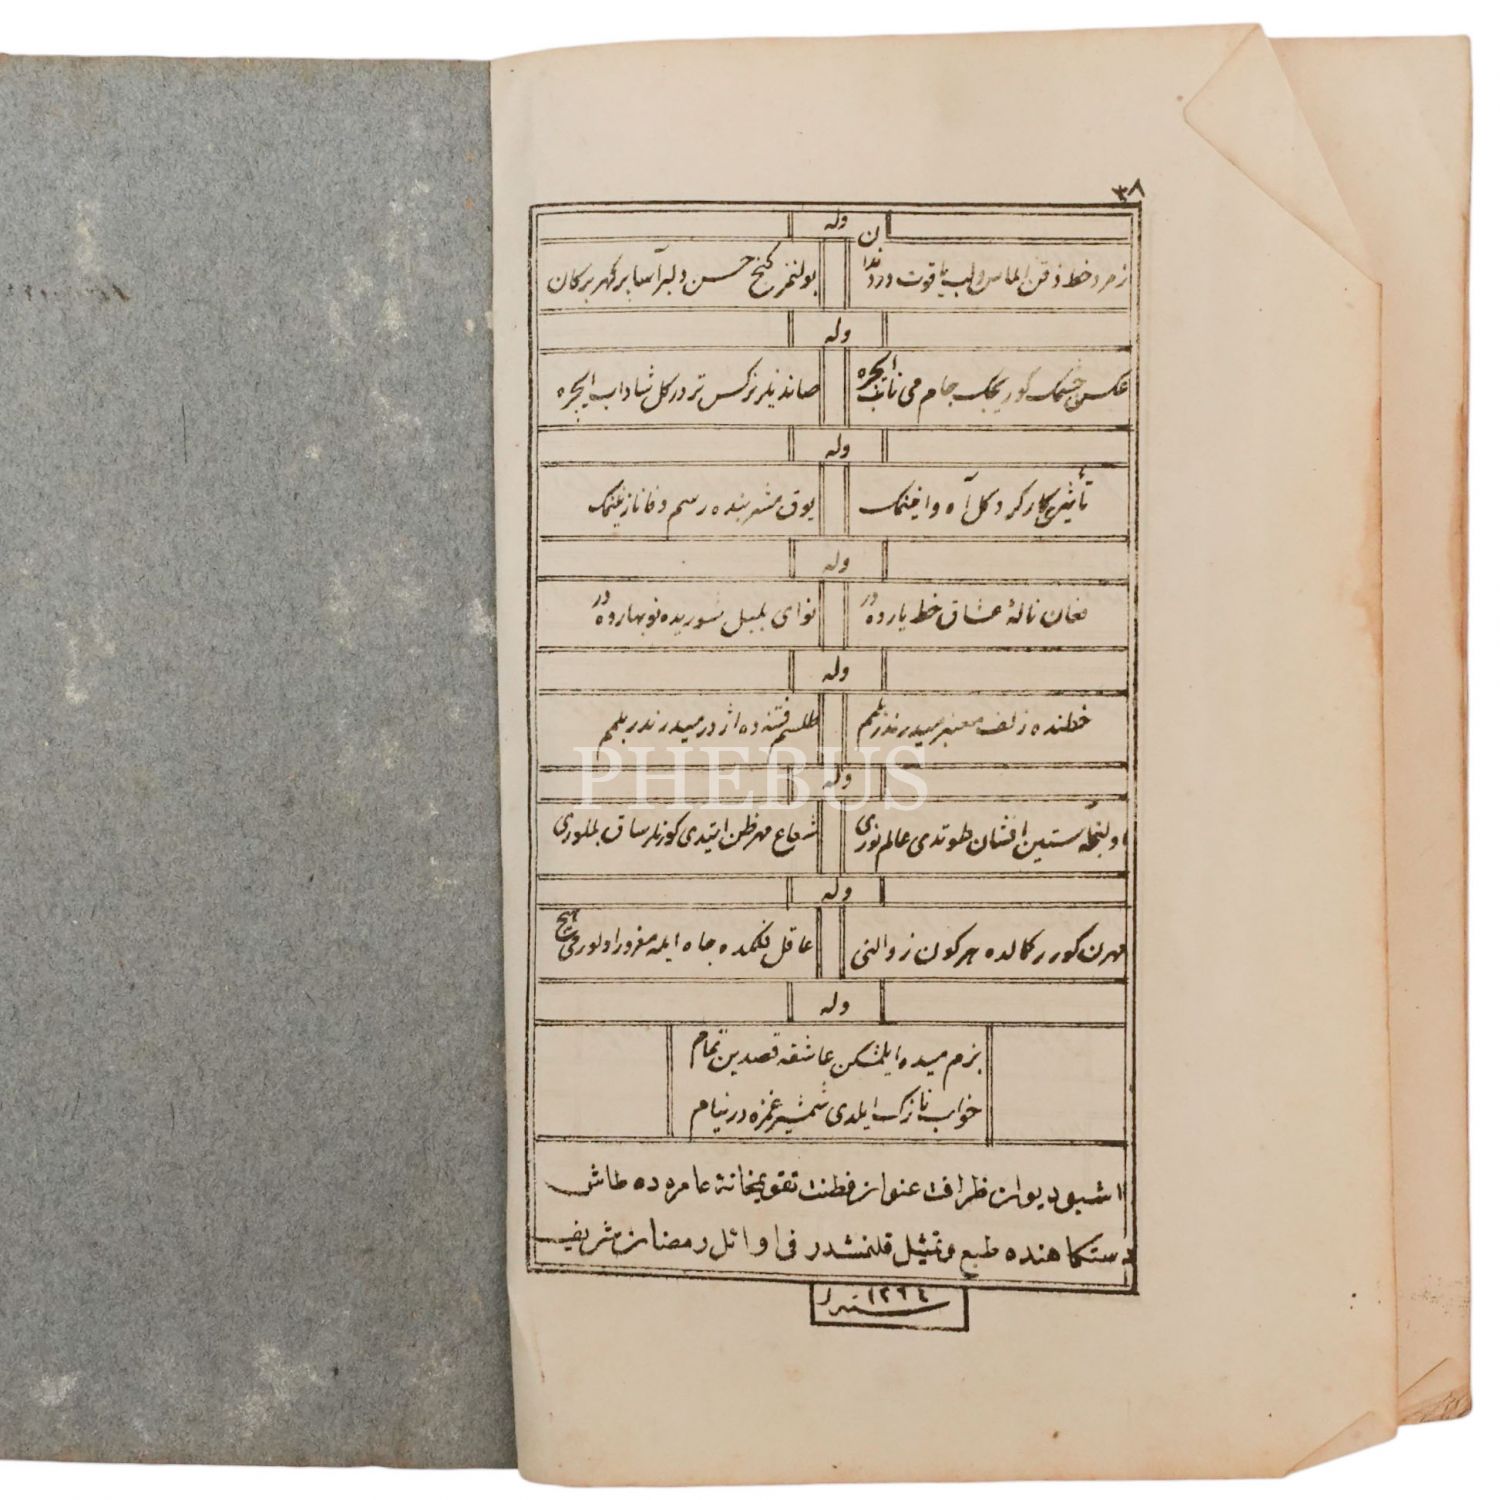 ٣٨
وله
زمرد خط ذقن الماس و لب ياقوت و در دندان
بولنمز گنج حسن دلبرآسا بر گهر بر كان
وله
عكس چشمك كوريجك جام مى ناب ايچره
صاندیلر نركس تر در كل شاداب ايچره
وله
تأثيرى كاركر دكل آه و انينمك
يوق مشربنده رسم وفا نازنينمك
وله
فغان ناله عشاق خط يارده در
نواى بلبل شوريده نوبهارده در
وله
خطنده زلف معنبر ميدر ندر بلمم
طلسم فتنه ده اژدر ميدر ندر بلمم
وله
اولنجه آستين افشان طوتدى عالم نورى
شعاع مهر ظن ايتدى كورنلر ساق بللورى
وله
مهرن كورر كمالده هر كون زوالنى
عاقل فلكده جاه ايله مغرور اولورمى هيچ
وله
بزم ميده ايلمشكن عاشقه قصدين تمام
خواب نازك ايلدى شمشير غمزه در نيام
اشبو ديوان ظرافت عنوان فطنت تقويمخانۀ عامره ده طاش
دستكاهنده طبع و تمثيل قلنمشدر فى اوائل رمضان شريف
سنه ١٢٦٤
PHEBUS